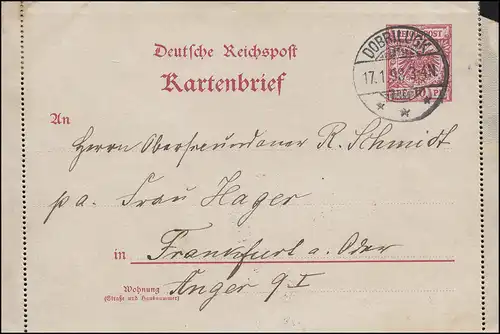 Deutsche Reichspost
Kartenbrief
REICHSPOST
DOBRILUGK
17.1.98. 3-4N
An
Herrn R. Schmidt
p a. Frau Hager
in Frankfurt a. Oder
Anger 9 I
Wohnung
(Straße und Hausnummer)